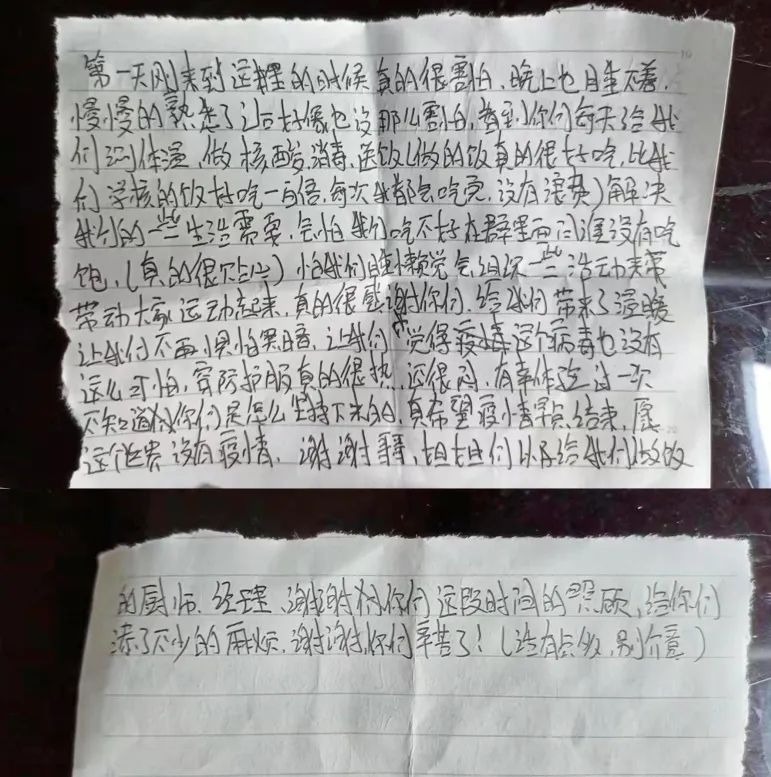 第一天刚来到这里的时候真的很害怕，晚上也睡不着，
慢慢的熟悉了过后好像也没那么害怕，看到你们每天给我
们测体温，做核酸，消毒，送饭（做的饭真的很好吃，比我
们学校的饭好吃一百倍，每次我都会吃完，没有浪费）解决
我们的一些生活需要，会怕我们吃不好在群里面问谁没有吃
饱，（真的很贴心）怕我们睡懒觉会组织一些活动来带
带动大家运动起来，真的很感谢你们，给我们带来了温暖
让我们不再惧怕黑暗，让我们觉得疫情这个病毒也没有
这么可怕，穿防护服真的很热，还很闷，有幸体验过一次
不知道你们是怎么坚持下来的，真希望疫情早点结束，愿
这个世界没有疫情，谢谢哥哥，姐姐们以及给我们做饭
的厨师、经理、谢谢你们这段时间的照顾，给你们
添了不少的麻烦，谢谢，你们辛苦了！（话有点多，别介意）